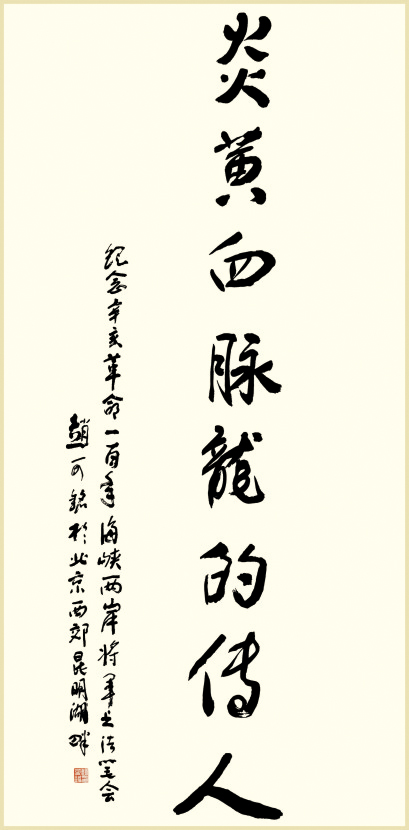 炎黄血脉龍的传人
纪念辛亥革命一百年海峡两岸将军书法笔会
趙可铭於北京西郊昆明湖畔